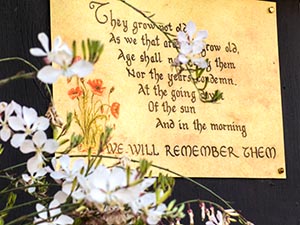 They grow not old
As we that are grow old,
Age shall not them
Nor the years condemn.
At the going
Of the sun
And in the morning
WE WILL REMEMBER THEM